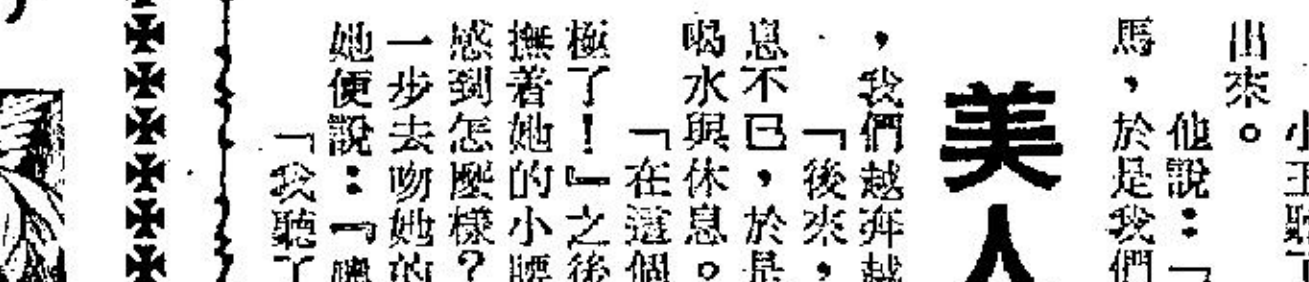 小王聽了
出來。
他說：「
馬，於是我們
美人
，我們越奔越
「後來，
息不已，於是
喝水與休息。
「在這個
極了！』之後
撫着她的小腰
感到怎麼樣？
一步去吻她的
她便說：『噢
「我聽了